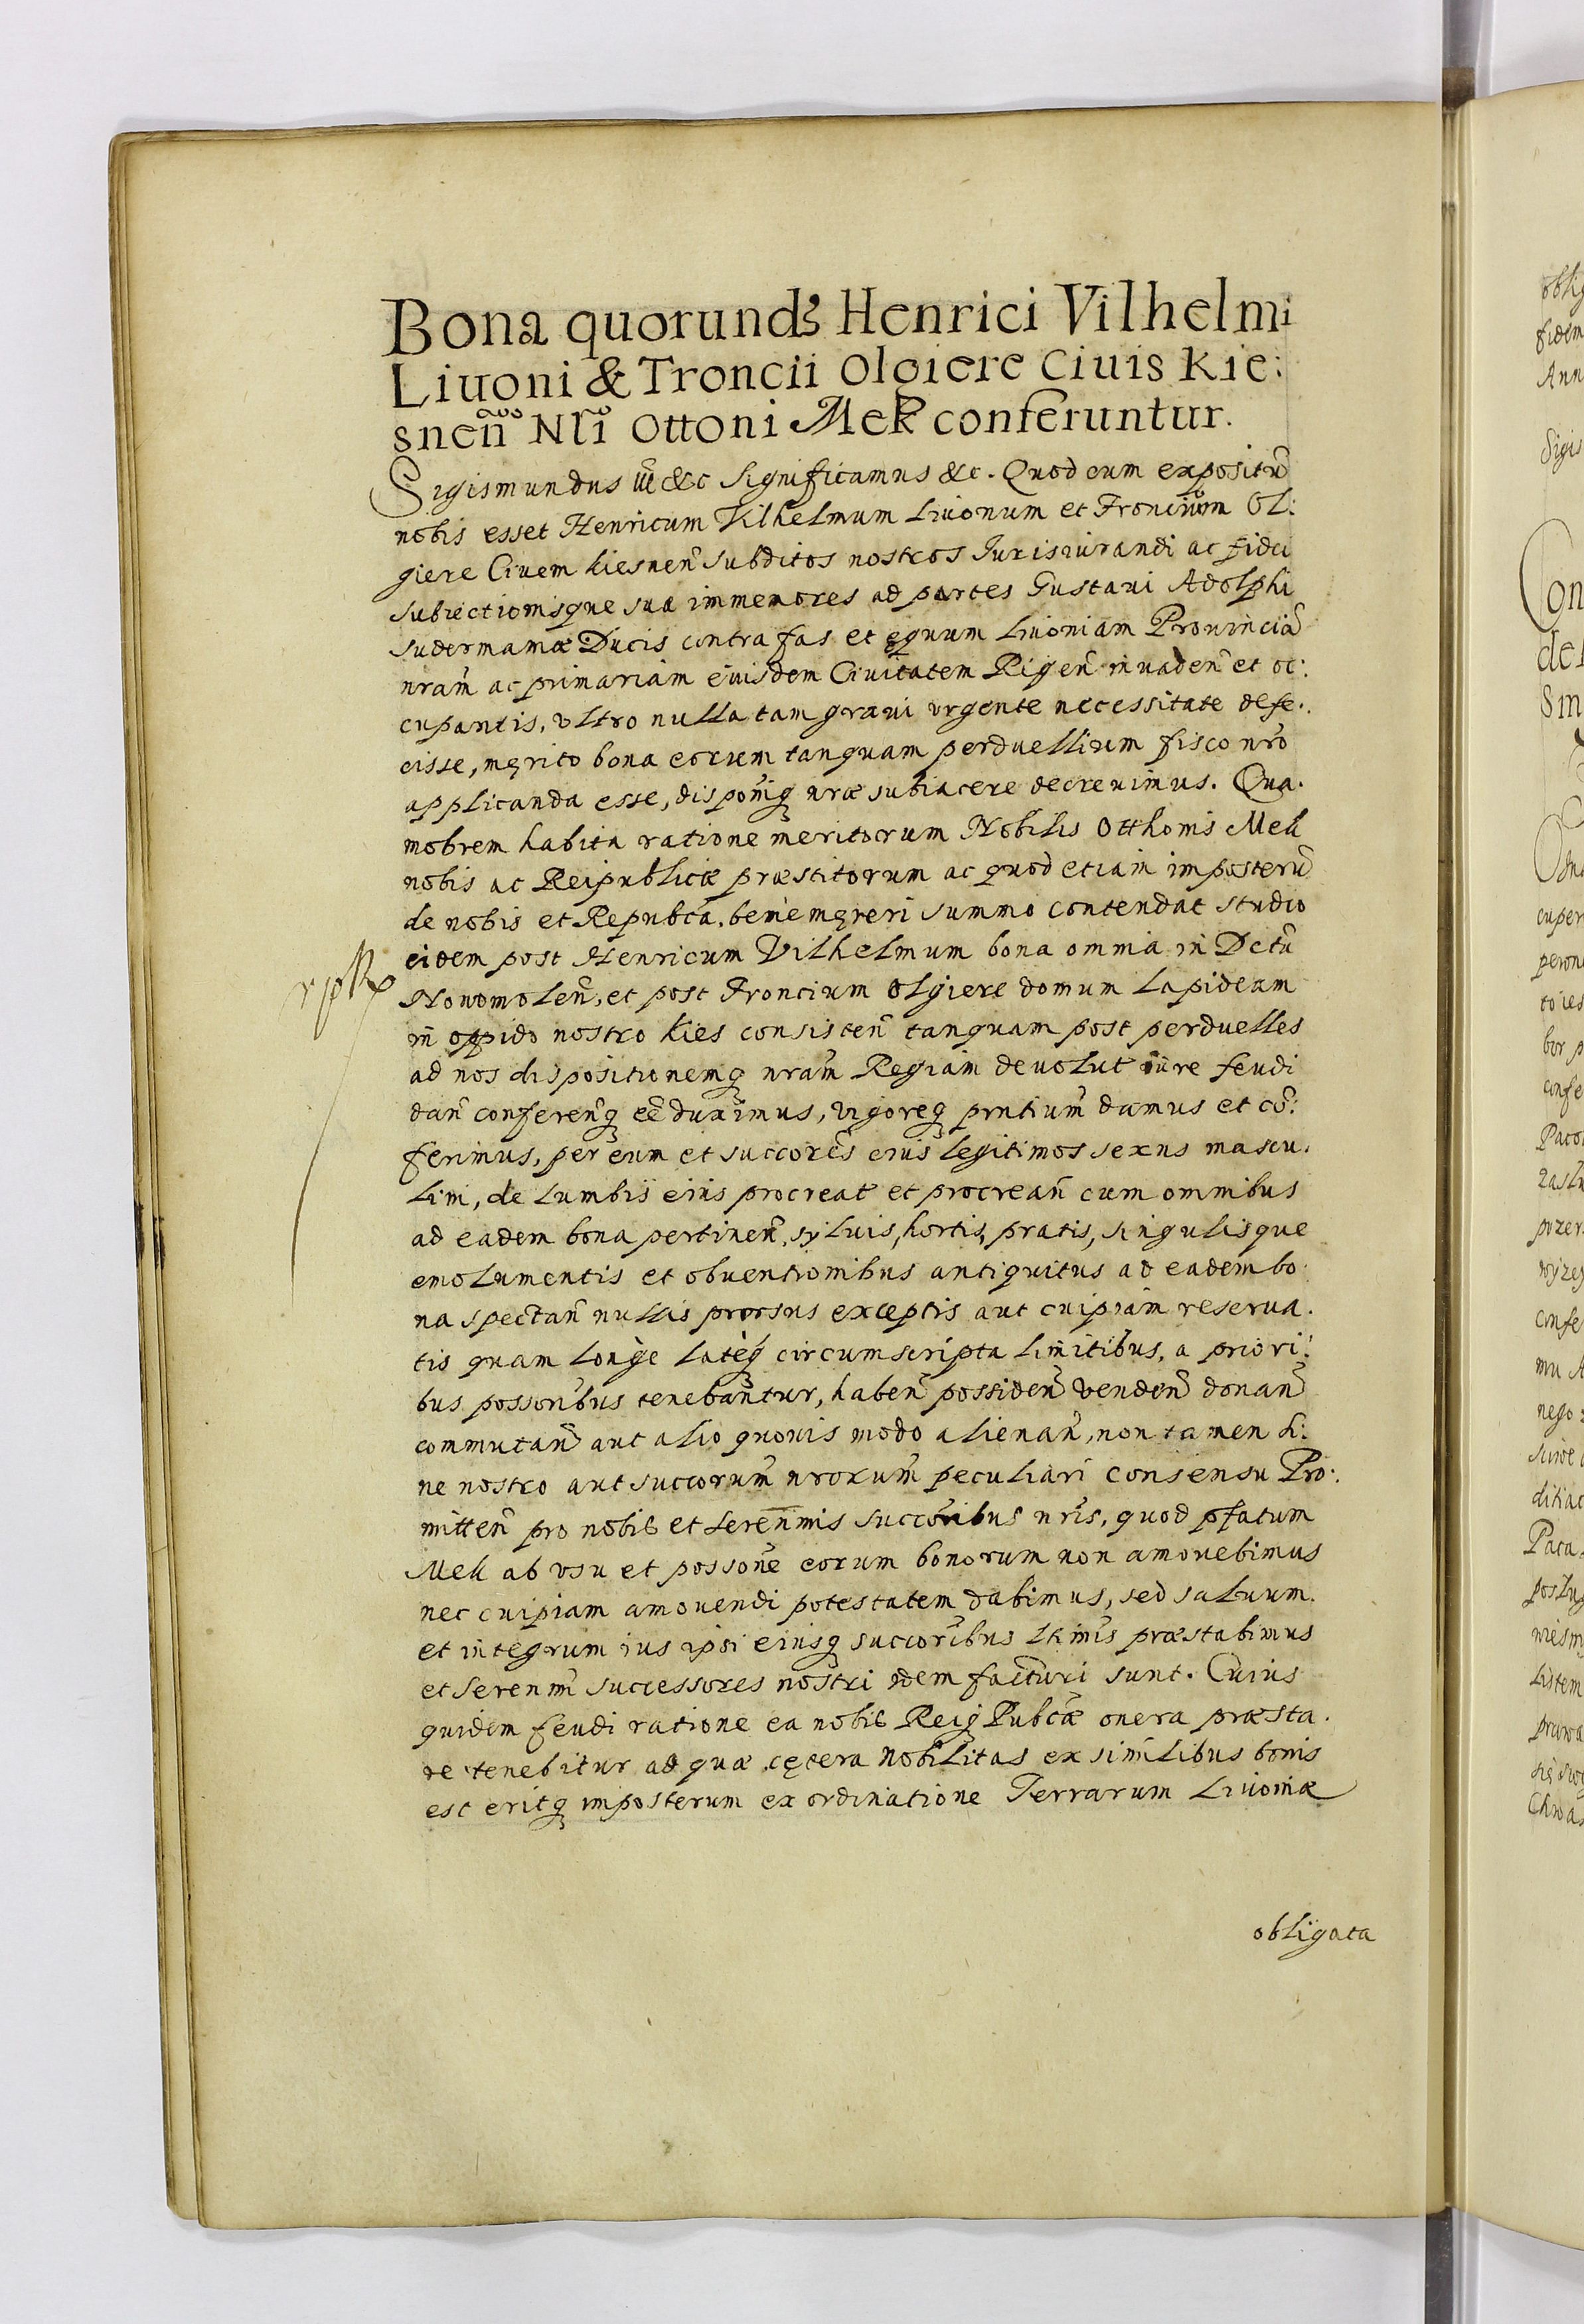 Bona quorundã Henrici Vilhelmi
Liuoni & Troncii Olgiere Ciuis Kie:
sneñ Nli Ottoni Mek conferuntur.
Sigismundus iii &c Significamus &c. Quod cum expositũ
nobis esset Henricum Vilhelmum Liuonum et Froncium Ol:
giere Ciuem kiesneñ subditos nostros Jurisiurandi ac fidei
subiectionisque suæ immemores ad partes Gustaui Adolphi
Sudermaniæ Ducis contra fas et ęquum Liuoniam Prouinciã
nrãm ac primariam eiusdem Ciuitatem Rigeñ inuadeñ et oc:
cupantis, vltro nulla tam graui vrgente necessitate defe:
cisse, męrito bona eorum tanquam perduellium fisco nrõ
applicanda esse, disponiq nræ subiacere decreuimus. Qua.
mobrem habita ratione meritorum Nobilis Otthonis Mek
nobis ac Reipublicæ præstitorum ac quod etiam imposterũ
de nobis et Repubca. bene męreri summo contendat studio
eidem post Henricum Vilhelmum bona omnia in Dctũ
Nowomoleñ, et post Froncium Olgiere domum lapideam
in oppido nostro Kies consisteñ tanquam post perduelles
ad nos dispositionemq nrãm Regiam deuolut iure feudi
dañ confereñq eẽ duximus, vigoreq pntium damus et cõ:
ferimus, per eum et succorẽs eius legitimos sexus mascu.
lini, de lumbis eius procreat et procreañ cum omnibus
ad eadem bona pertineñ, syluis, hortis, pratis, singulisque
emolumentis et obuentionibus antiquitus ad eadem bo:
na spectañ nullis prorsus exceptis aut cuipiam reserua.
tis quam longè latèq circumscripta limitibus, a priori:
bus possoribus tenebantur, habeñ possideñ vendeñ donañ
commutañ aut alio quouis modo alienañ, non tamen si:
ne nostro aut succorum nrorum peculiari consensu Pro:
mitteñ pro nobis et serenmis succoribus nris, quod pfatum
Mek ab vsu et possone eorum bonorum non amouebimus
nec cuipiam amouendi potestatem dabimus, sed saluum
et integrum ius ipsi eiusq succoribus ltimis præstabimus
et serenmi successores nostri idem facturi sunt. Cuius
quidem feudi ratione ea nobis Reiq Pubcæ onera præsta.
re tenebitur ad quæ cętera nobilitas ex similibus bonis
est eritq imposterum ex ordinatione Terrarum Liuoniæ
obligata